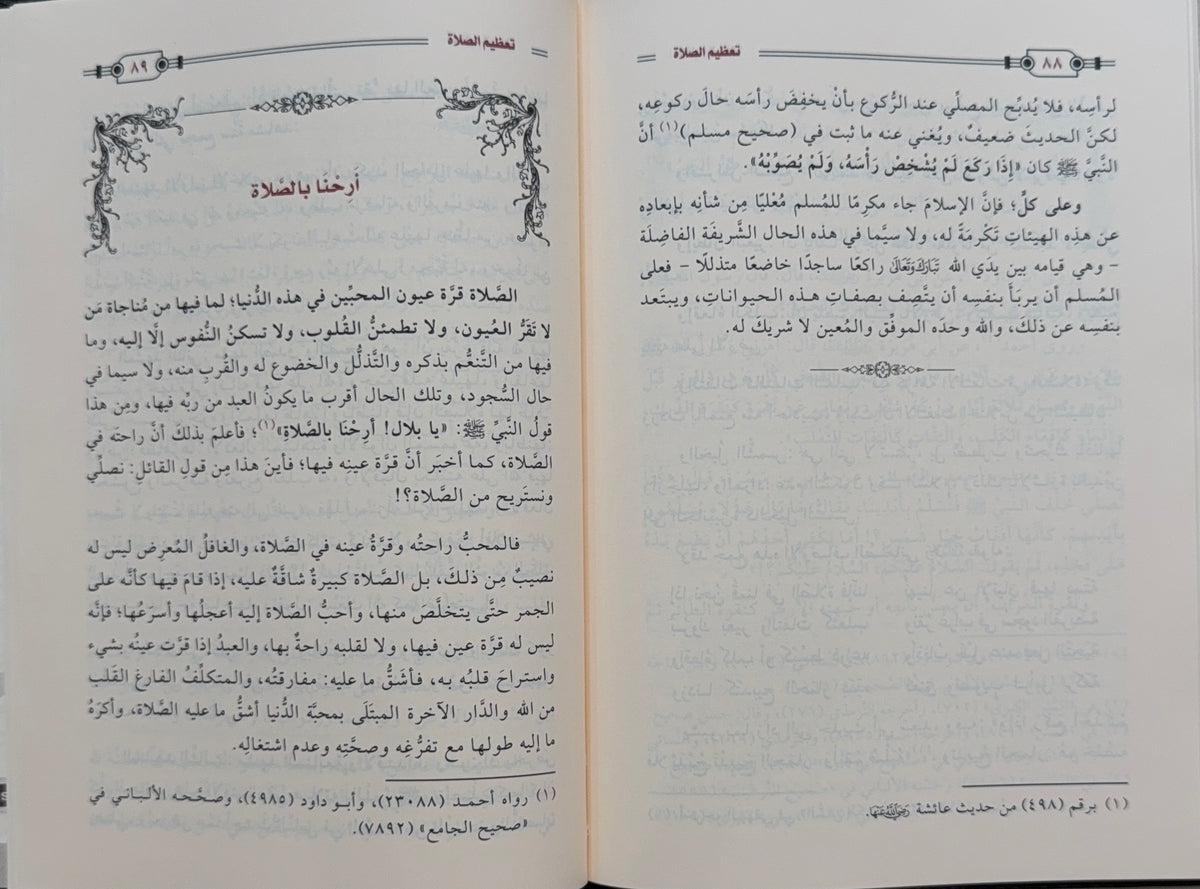 ٨٨
تعظيم الصلاة
لرأسِه، فلا يُدبِّح المصلِّي عند الرُّكوع بأنْ يخفِضَ رأسَه حالَ ركوعِه،
لكنَّ الحديثَ ضعيفٌ، ويُغني عنه ما ثبت في (صحيح مسلم)(١) أنَّ
النَّبيَّ ﷺ كان «إِذَا رَكَعَ لَمْ يُشْخِصْ رَأْسَهُ، وَلَمْ يُصَوِّبْهُ».
وعلى كلٍّ؛ فإنَّ الإسلامَ جاء مكرِمًا للمُسلم مُعْليًا مِن شأنِه بإبعادِه
عن هذِه الهيئاتِ تَكْرمَةً له، ولا سيَّما في هذه الحال الشَّريفَة الفاضِلَة
- وهي قيامُه بين يدَي الله تَبَارَكَ وَتَعَالَى راكعًا ساجدًا خاضعًا متذللًا - فعلى
المُسلم أن يربَأ بنفسِه أن يتَّصِف بصفاتِ هذه الحيواناتِ، ويبتَعد
بنفسِه عن ذلكَ، والله وحدَه الموفِّق والمُعين لا شريكَ له.
(١) برقم (٤٩٨) من حديث عائشة رَضِيَ اللَّهُ عَنْهَا.
تعظيم الصلاة
٨٩
أَرِحْنَا بالصَّلاة
الصَّلاة قرَّة عيون المحبِّين في هذه الدُّنيا؛ لما فيها من مُناجاة مَن
لا تَقَرُّ العُيون، ولا تطمئنُّ القُلوب، ولا تسكنُ النُّفوس إلَّا إليه، وما
فيها من التَّنعُّم بذكره والتَّذلُّل والخضوع له والقُربِ منه، ولا سيما في
حال السُّجود، وتلك الحال أقرب ما يكونُ العبد من ربِّه فيها، ومِن هذا
قولُ النَّبيِّ ﷺ: «يا بلال! أرِحْنَا بالصَّلاةِ»(١)؛ فأعلمَ بذلكَ أنَّ راحته في
الصَّلاة، كما أخبَر أنَّ قرَّة عينِه فيها؛ فأينَ هذا مِن قولِ القائلِ: نصلِّي
ونستَريح من الصَّلاة؟!
فالمحبُّ راحتُه وقرَّةُ عينه في الصَّلاة، والغافلُ المُعرِض ليس له
نصيبٌ مِن ذلكَ، بل الصَّلاة كبيرةٌ شاقَّةٌ عليه، إذا قامَ فيها كأنَّه على
الجمر حتَّى يتخلَّصَ منها، وأحبُّ الصَّلاة إليه أعجلُها وأسرَعُها؛ فإنَّه
ليس له قرَّة عين فيها، ولا لقلبه راحةٌ بها، والعبدُ إذا قرَّت عينُه بشيء
واستراحَ قلبُه به، فأشَقُّ ما عليه: مفارقتُه، والمتكلِّفُ الفارغُ القَلب
من الله والدَّار الآخرة المبتَلَى بمحبَّة الدُّنيا أشقُّ ما عليه الصَّلاة، وأكرَهُ
ما إليه طولها مع تفرُّغِه وصحَّته وعدم اشتغالِه.
(١) رواه أحمد (٢٣٠٨٨)، وأبو داود (٤٩٨٥)، وصحَّحه الألباني في
«صحيح الجامع» (٧٨٩٢).